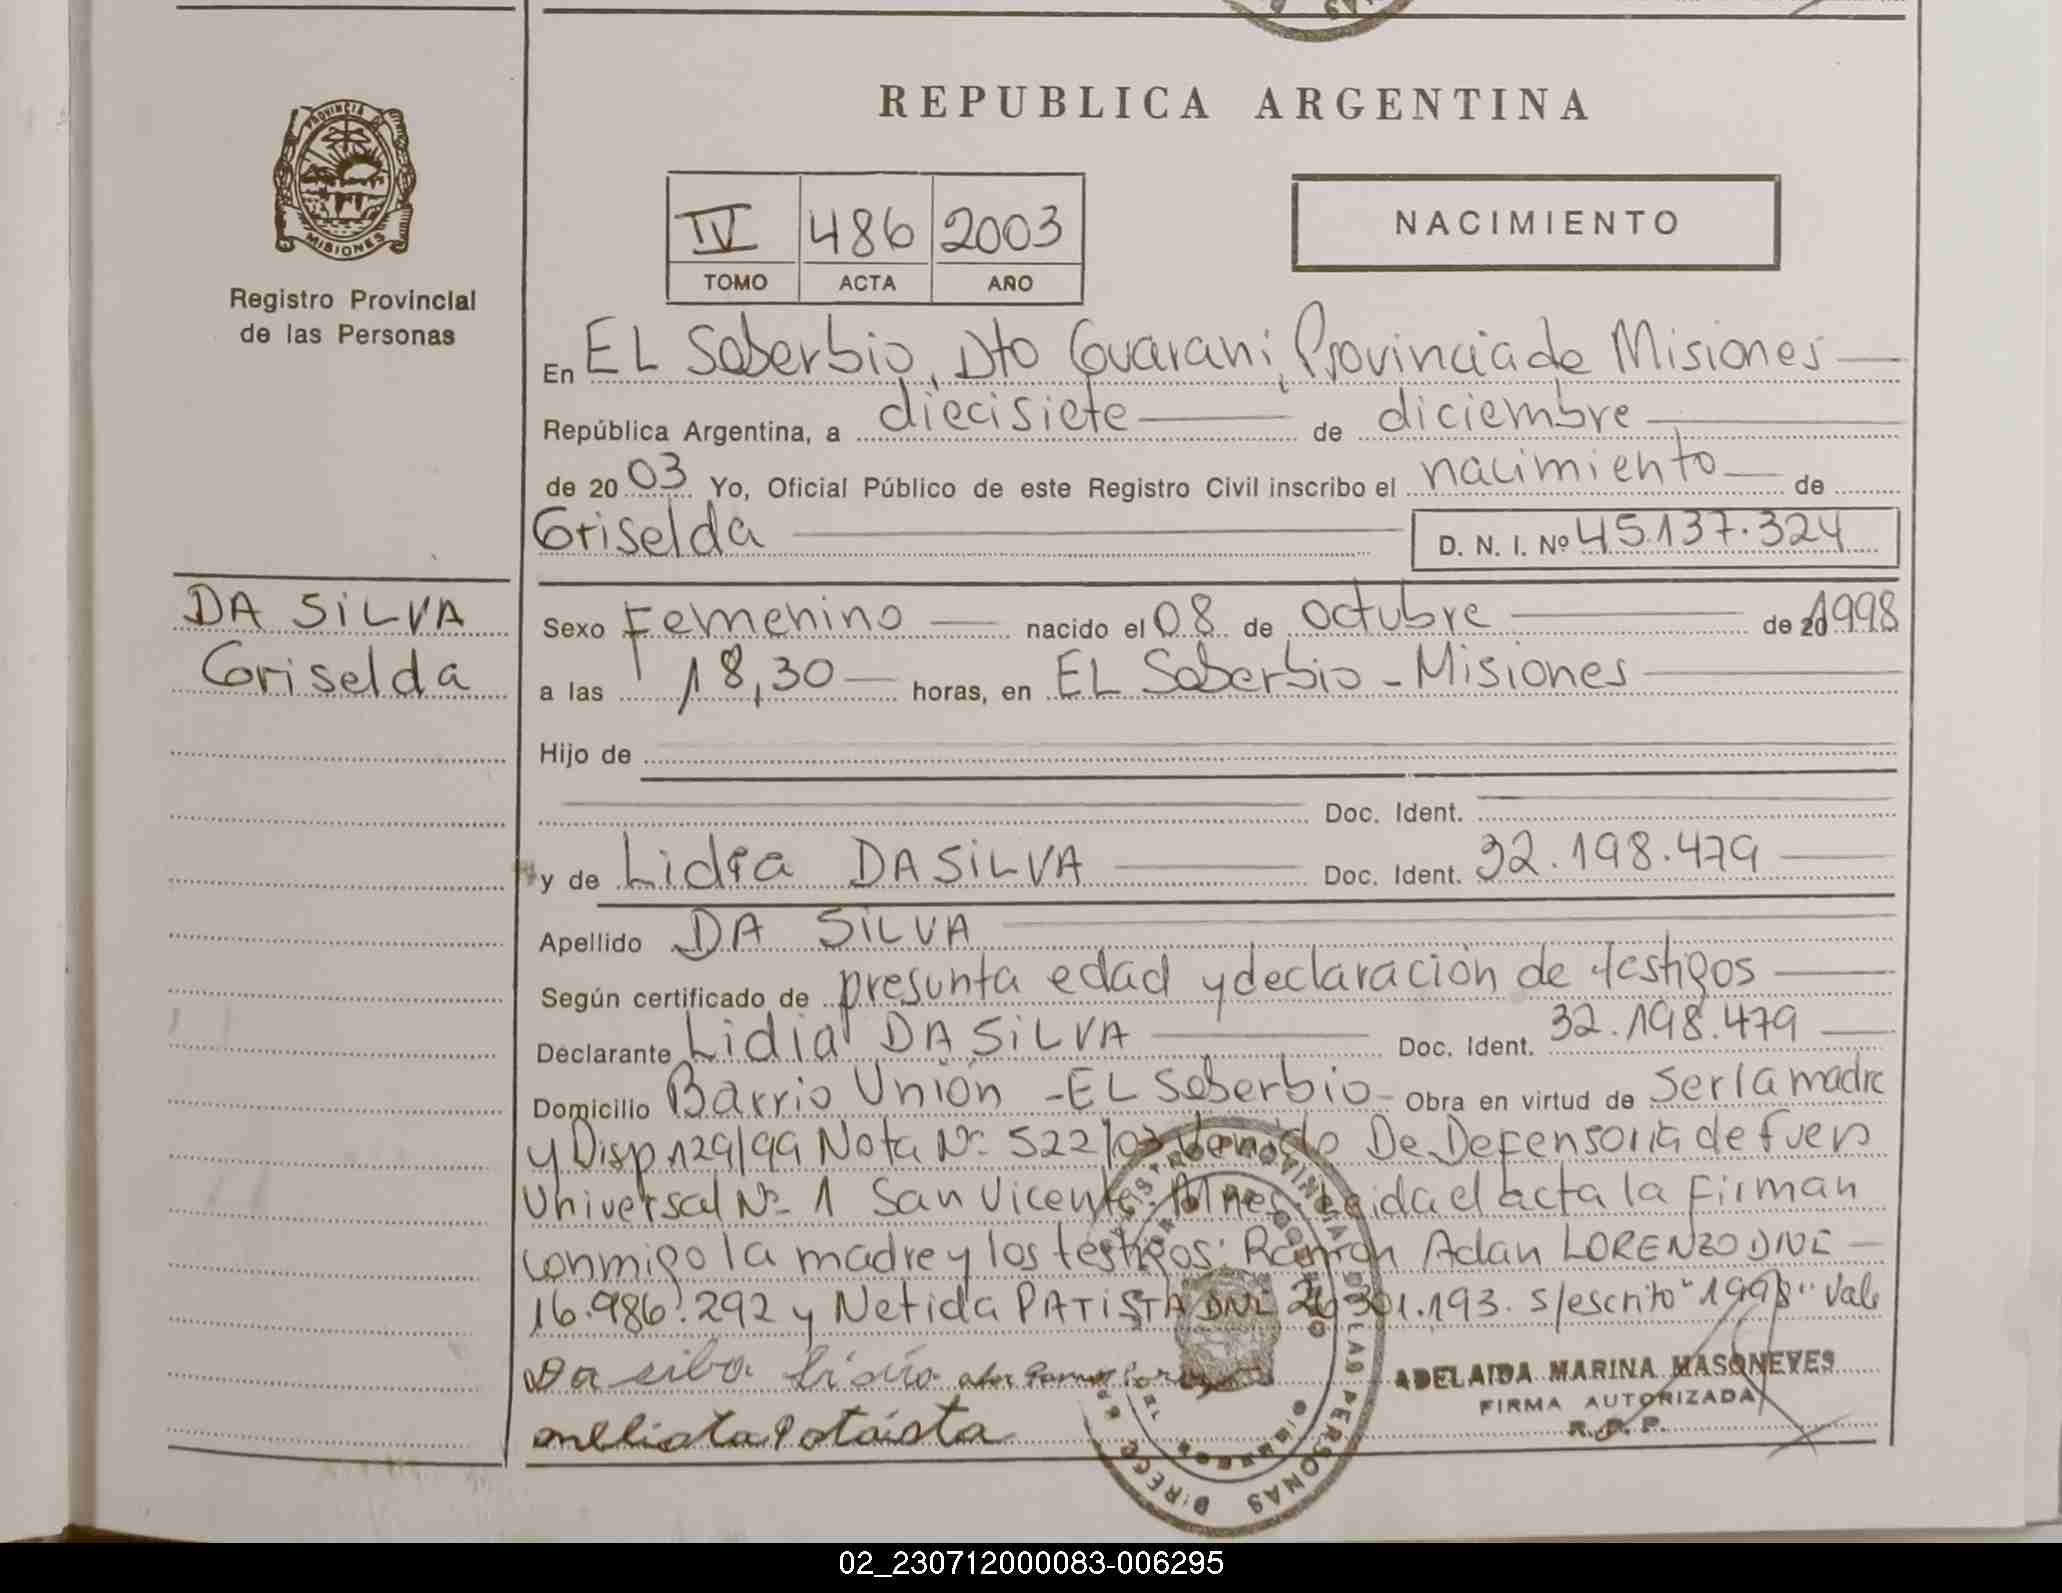 REPUBLICA ARGENTINA
PROVINCIA DE
MISIONES
Registro Provincial
de las Personas
IV 486 2003
TOMO ACTA AÑO
NACIMIENTO
En EL Soberbio, Dto Guarani, Provincia de Misiones
República Argentina, a diecisiete de diciembre
de 20 03 Yo, Oficial Público de este Registro Civil inscribo el nacimiento de
Griselda D. N. I. Nº 45.137.324
DA SiLVA
Griselda
Sexo Femenino nacido el 08 de octubre de 20 1998
a las 18,30 horas, en EL Soberbio - Misiones
Hijo de
Doc. Ident.
y de Lidia DA SiLVA Doc. Ident. 32.198.479
Apellido DA SiLVA
Según certificado de presunta edad y declaración de testigos
Declarante Lidia DA SiLVA Doc. Ident. 32.198.479
Domicilio Barrio Unión - EL Soberbio - Obra en virtud de ser la madre
y Disp 129/99 Nota Nº 522/03 Venido De Defensoria de Fuero
Universal Nº 1 San Vicente Mnes. Leida el acta la Firman
conmigo la madre y los testigos: Ramon Adan LORENZO DNI
16.986.292 y Nelida PATiSTA DNI 301.193. s/escrito "1998" Vale
Da silva
ADELAIDA MARINA MASONEVES
FIRMA AUTORIZADA
R. P. P.
02_230712000083-006295